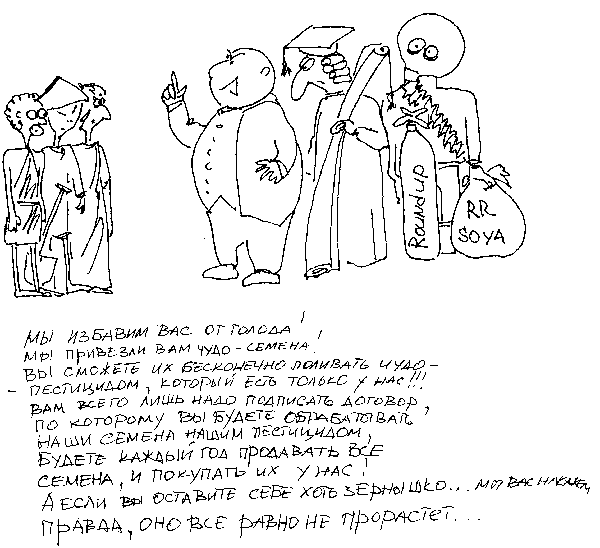 Roundup
RR
SOYA
МЫ ИЗБАВИМ ВАС ОТ ГОЛОДА!
МЫ ПРИВЕЗЛИ ВАМ ЧУДО-СЕМЕНА!
ВЫ СМОЖЕТЕ ИХ БЕСКОНЕЧНО ПОЛИВАТЬ ЧУДО-
- ПЕСТИЦИДОМ, КОТОРЫЙ ЕСТЬ ТОЛЬКО У НАС!!!
ВАМ ВСЕГО ЛИШЬ НАДО ПОДПИСАТЬ ДОГОВОР,
ПО КОТОРОМУ ВЫ БУДЕТЕ ОБРАБАТЫВАТЬ
НАШИ СЕМЕНА НАШИМ ПЕСТИЦИДОМ,
БУДЕТЕ КАЖДЫЙ ГОД ПРОДАВАТЬ ВСЕ
СЕМЕНА, И ПОКУПАТЬ ИХ У НАС!
А ЕСЛИ ВЫ ОСТАВИТЕ СЕБЕ ХОТЬ ЗЕРНЫШКО... МЫ ВАС
ПРАВДА, ОНО ВСЕ РАВНО НЕ ПРОРАСТЕТ...